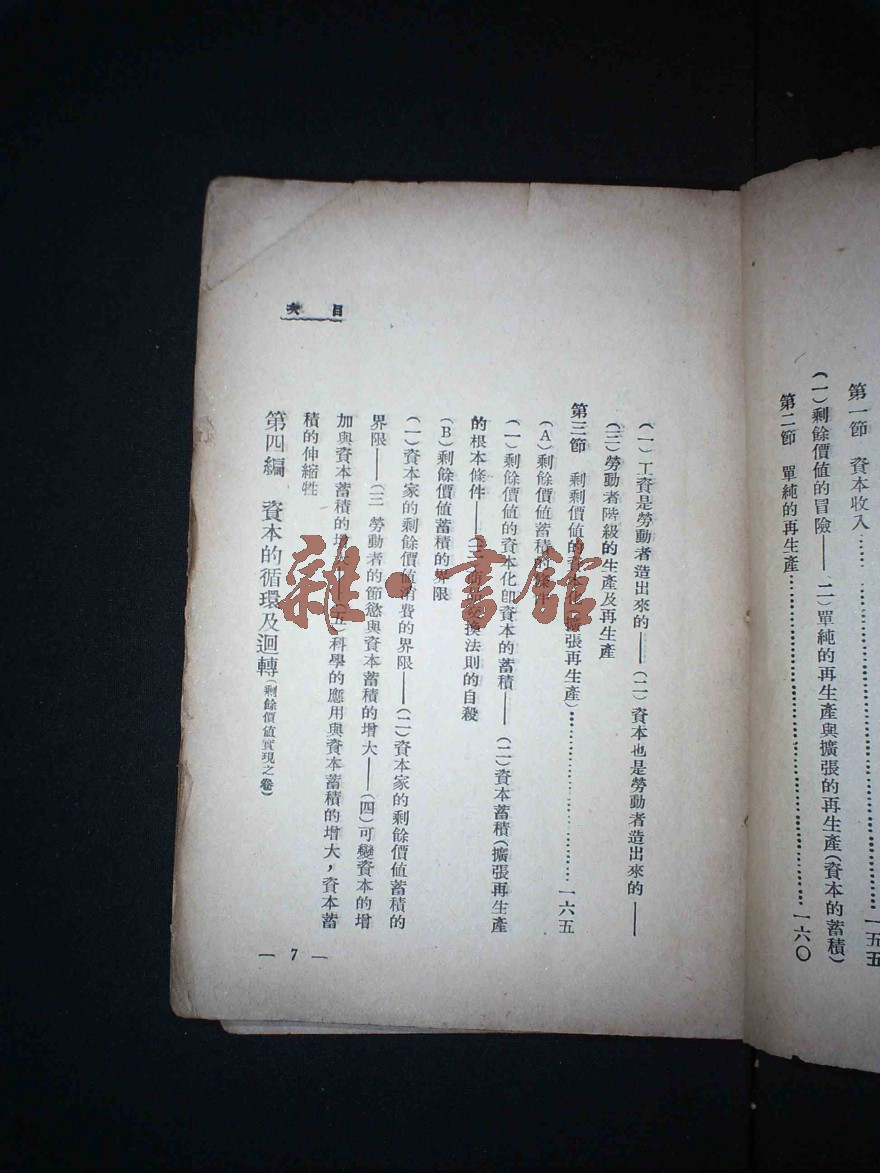 第一節 資本收入……一五五
(一)剩餘價值的冒險——二)單純的再生產與擴張的再生產(資本的蓄積)
第二節 單純的再生產……一六〇
目 次
(一)工資是勞動者造出來的——(二)資本也是勞動者造出來的——
(三)勞動者階級的生產及再生產
第三節 剩剩價值的 (擴張再生產)……一六五
(A)剩餘價值蓄積的
(一)剩餘價值的資本化卽資本的蓄積——(二)資本蓄積(擴張再生產
的根本條件——(三 換法則的自殺
(B)剩餘價値蓄積的界限
(一)資本家的剩餘價值消費的界限——(二)資本家的剩餘價值蓄積的
界限——(三 勞動者的節慾與資本蓄積的增大——(四)可變資本的增
加與資本蓄積的增 (五)科學的應用與資本蓄積的增大，資本蓄
積的伸縮性
第四編 資本的循環及迴轉(剩餘價值實現之卷)
— 7 —
雜·書館